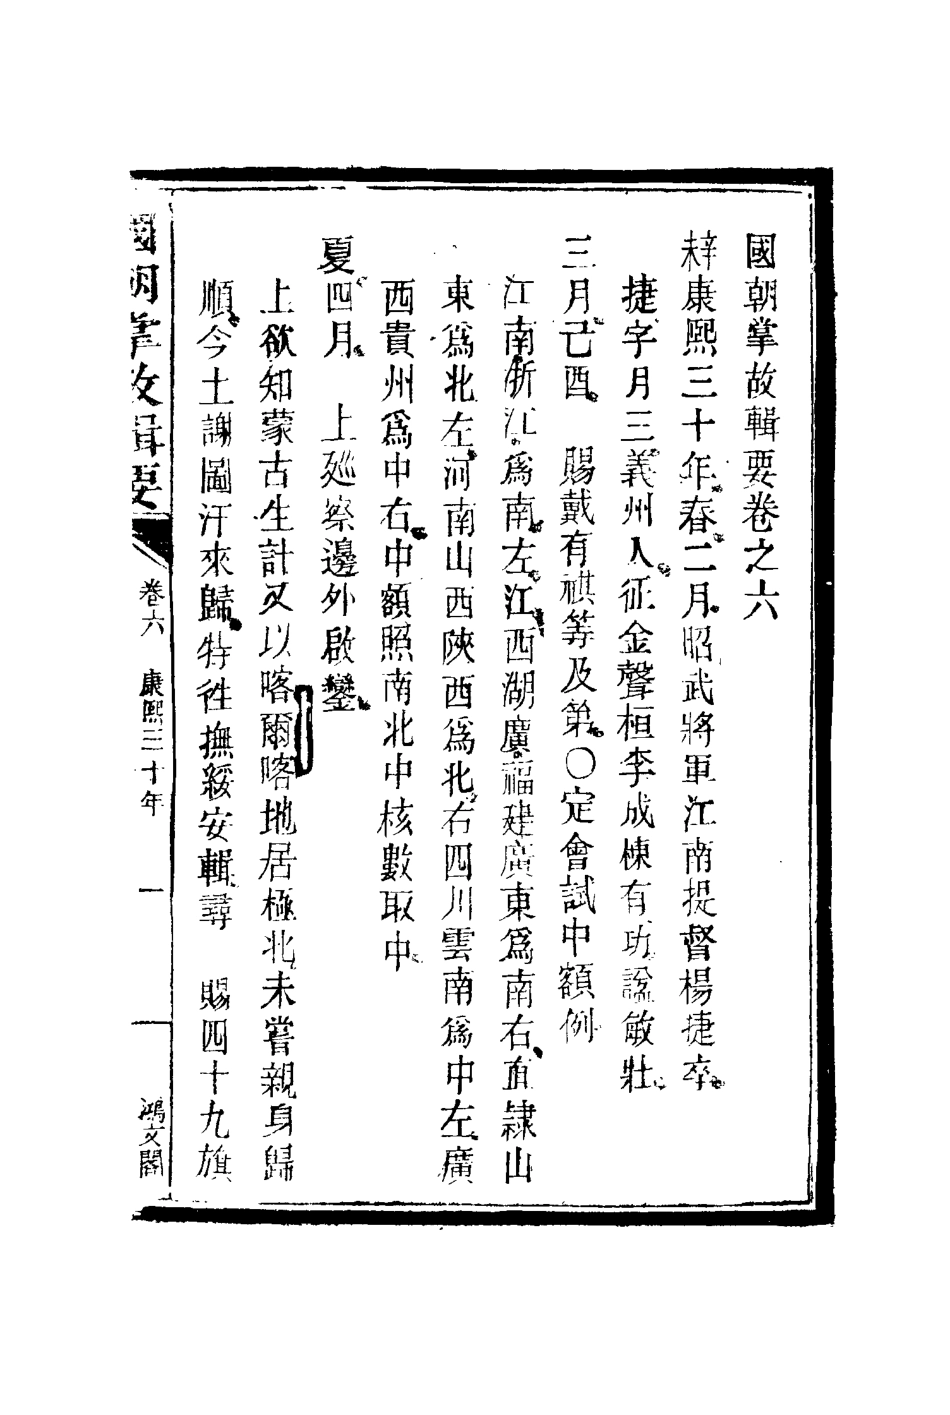 國朝掌故輯要卷之六
辛未康熙三十年春二月昭武將軍江南提督楊捷卒
捷字月三義州人征金聲桓李成棟有功諡敏壯
三月己酉　賜戴有祺等及第○定會試中額例
江南浙江爲南左江西湖廣福建廣東爲南右直隸山
東爲北左河南山西陝西爲北右四川雲南爲中左廣
西貴州爲中右中額照南北中核數取中
夏四月　上廵察邊外啟鑾
上欲知蒙古生計又以喀爾喀地居極北未嘗親身歸
順今土謝圖汗來歸特徃撫綏安輯尋　賜四十九旗
國朝掌故輯要　卷六　康熙三十年　一　鴻文閣